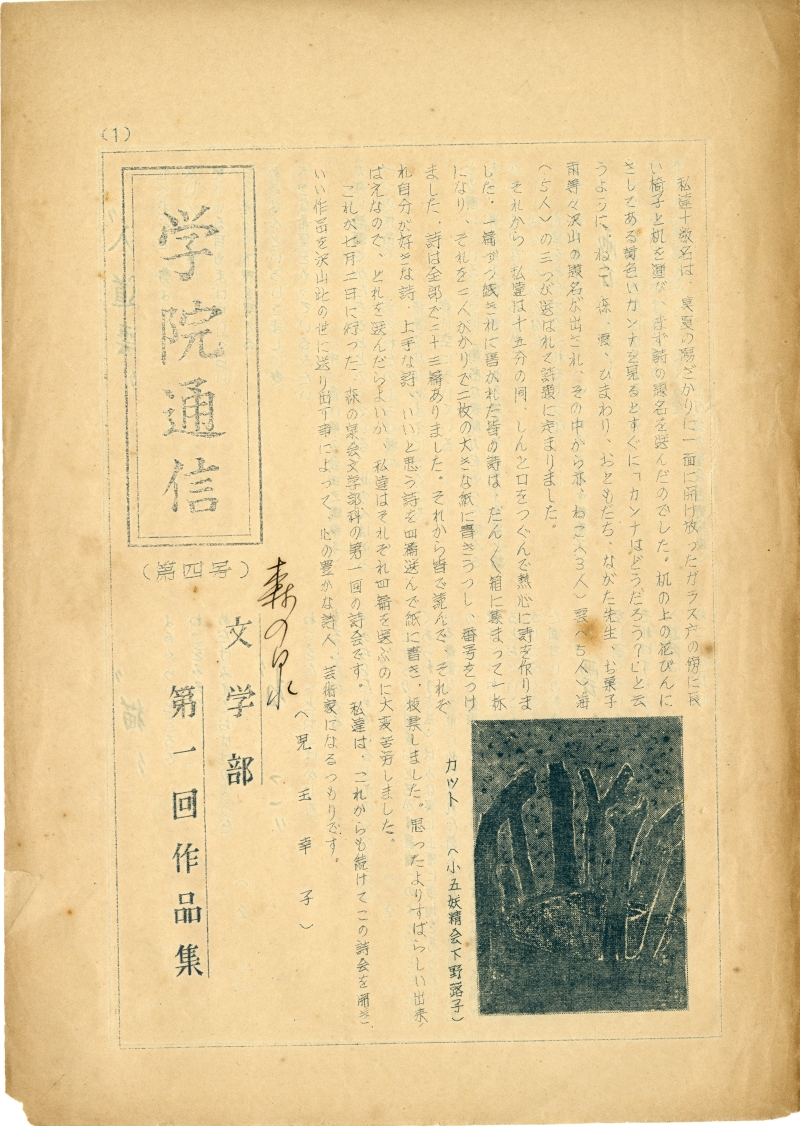 (1)
私達十数名は、真夏の陽ざかりに一面に開け放ったガラス戸の傍に長
い椅子と机を運び、まず詩の題名を選んだのでした。机の上の花びんに
さしてある黄色いカンナを見るとすぐに「カンナはどうだろう?」と云
うように、ねこ、森、雲、ひまわり、おともだち、ながた先生、お菓子
雨等々沢山の題名が出され、その中から亦、ねこ(3人)雲(5人)海
(5人)の三つが選ばれて詩題に定まりました。
それから、私達は十五分の間、しんと口をつぐんで熱心に詩を作りま
した。一篇ずつ紙きれに書かれた皆の詩は、だん〱箱に集まって一杯
になり、それを三人がかりで二枚の大きな紙に書きうつし、番号をつけ
ました。詩は全部で二十三篇ありました。それから皆で読んで、それぞ
れ自分が好きな詩、上手な詩、いいと思う詩を四篇選んで紙に書き、投票しました。思ったよりすばらしい出来
ばえなので、どれを選んだらよいか、私達はそれぞれ四篇を選ぶのに大変苦労しました。
これが七月二日に行った、森の泉会文学部科の第一回の詩会です。私達は、これからも続けてこの詩会を開き、
いい作品を沢山此の世に送り出す事によって、心の豊かな詩人、芸術家になるつもりです。
(児玉幸子)
カット (小五妖精会下野蕗子)
学院通信
(第四号)
森の泉
文学部
第一回作品集